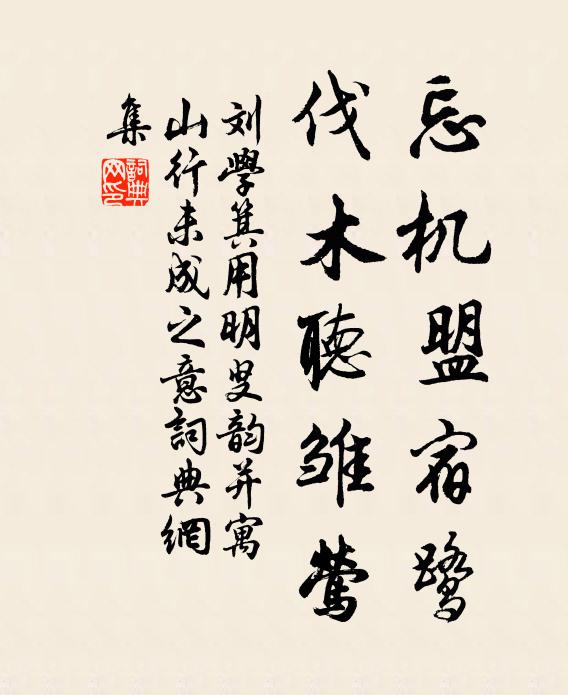 忘机盟宿鹭
伐木聽雏莺
刘學箕用明叟韵并寓
山行未成之意詞典網
集
詞典網印